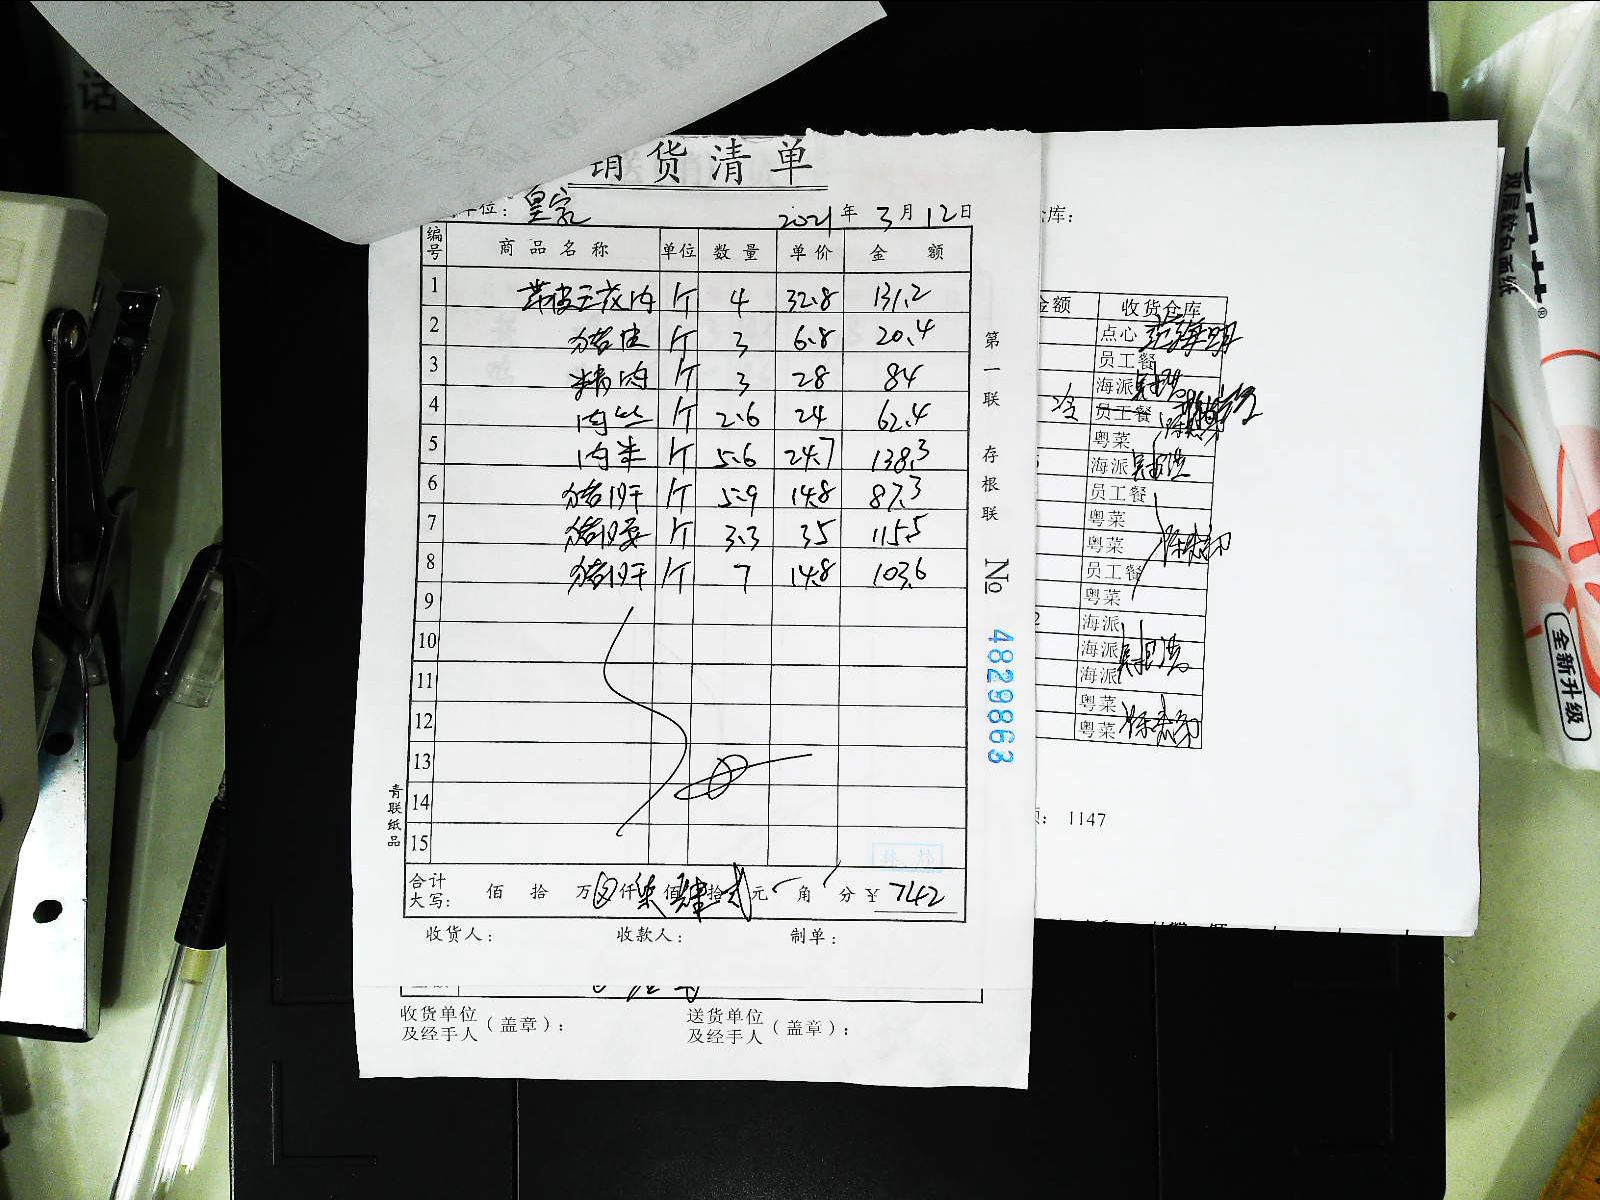 销货清单
单位: 皇家 2021年3月12日
编号 商品名称 单位 数量 单价 金额
1 带皮五花肉 斤 4 32.8 131.2
2 斤 3 6.8 20.4
3 精肉 斤 3 28 84
4 肉丝 斤 2.6 24 62.4
5 肉末 斤 5.6 24.7 138.3
6 猪肝 斤 5.9 14.8 87.3
7 猪腰 斤 3.3 35 115.5
8 猪肝 斤 7 14.8 103.6
9
10
11
12
13
14
15
合计大写: 佰 拾 万 仟 柒佰肆拾贰元 角 分 ¥ 742
收货人: 收款人: 制单:
青联纸品
第一联 存根联
№ 4829863
收货单位及经手人(盖章): 送货单位及经手人(盖章):
仓库:
金额 收货仓库
点心
员工餐
海派
员工餐
粤菜
海派
员工餐
粤菜
粤菜
员工餐
粤菜
海派
海派
海派
粤菜
粤菜
: 1147
双层软包面纸
全新升级
话